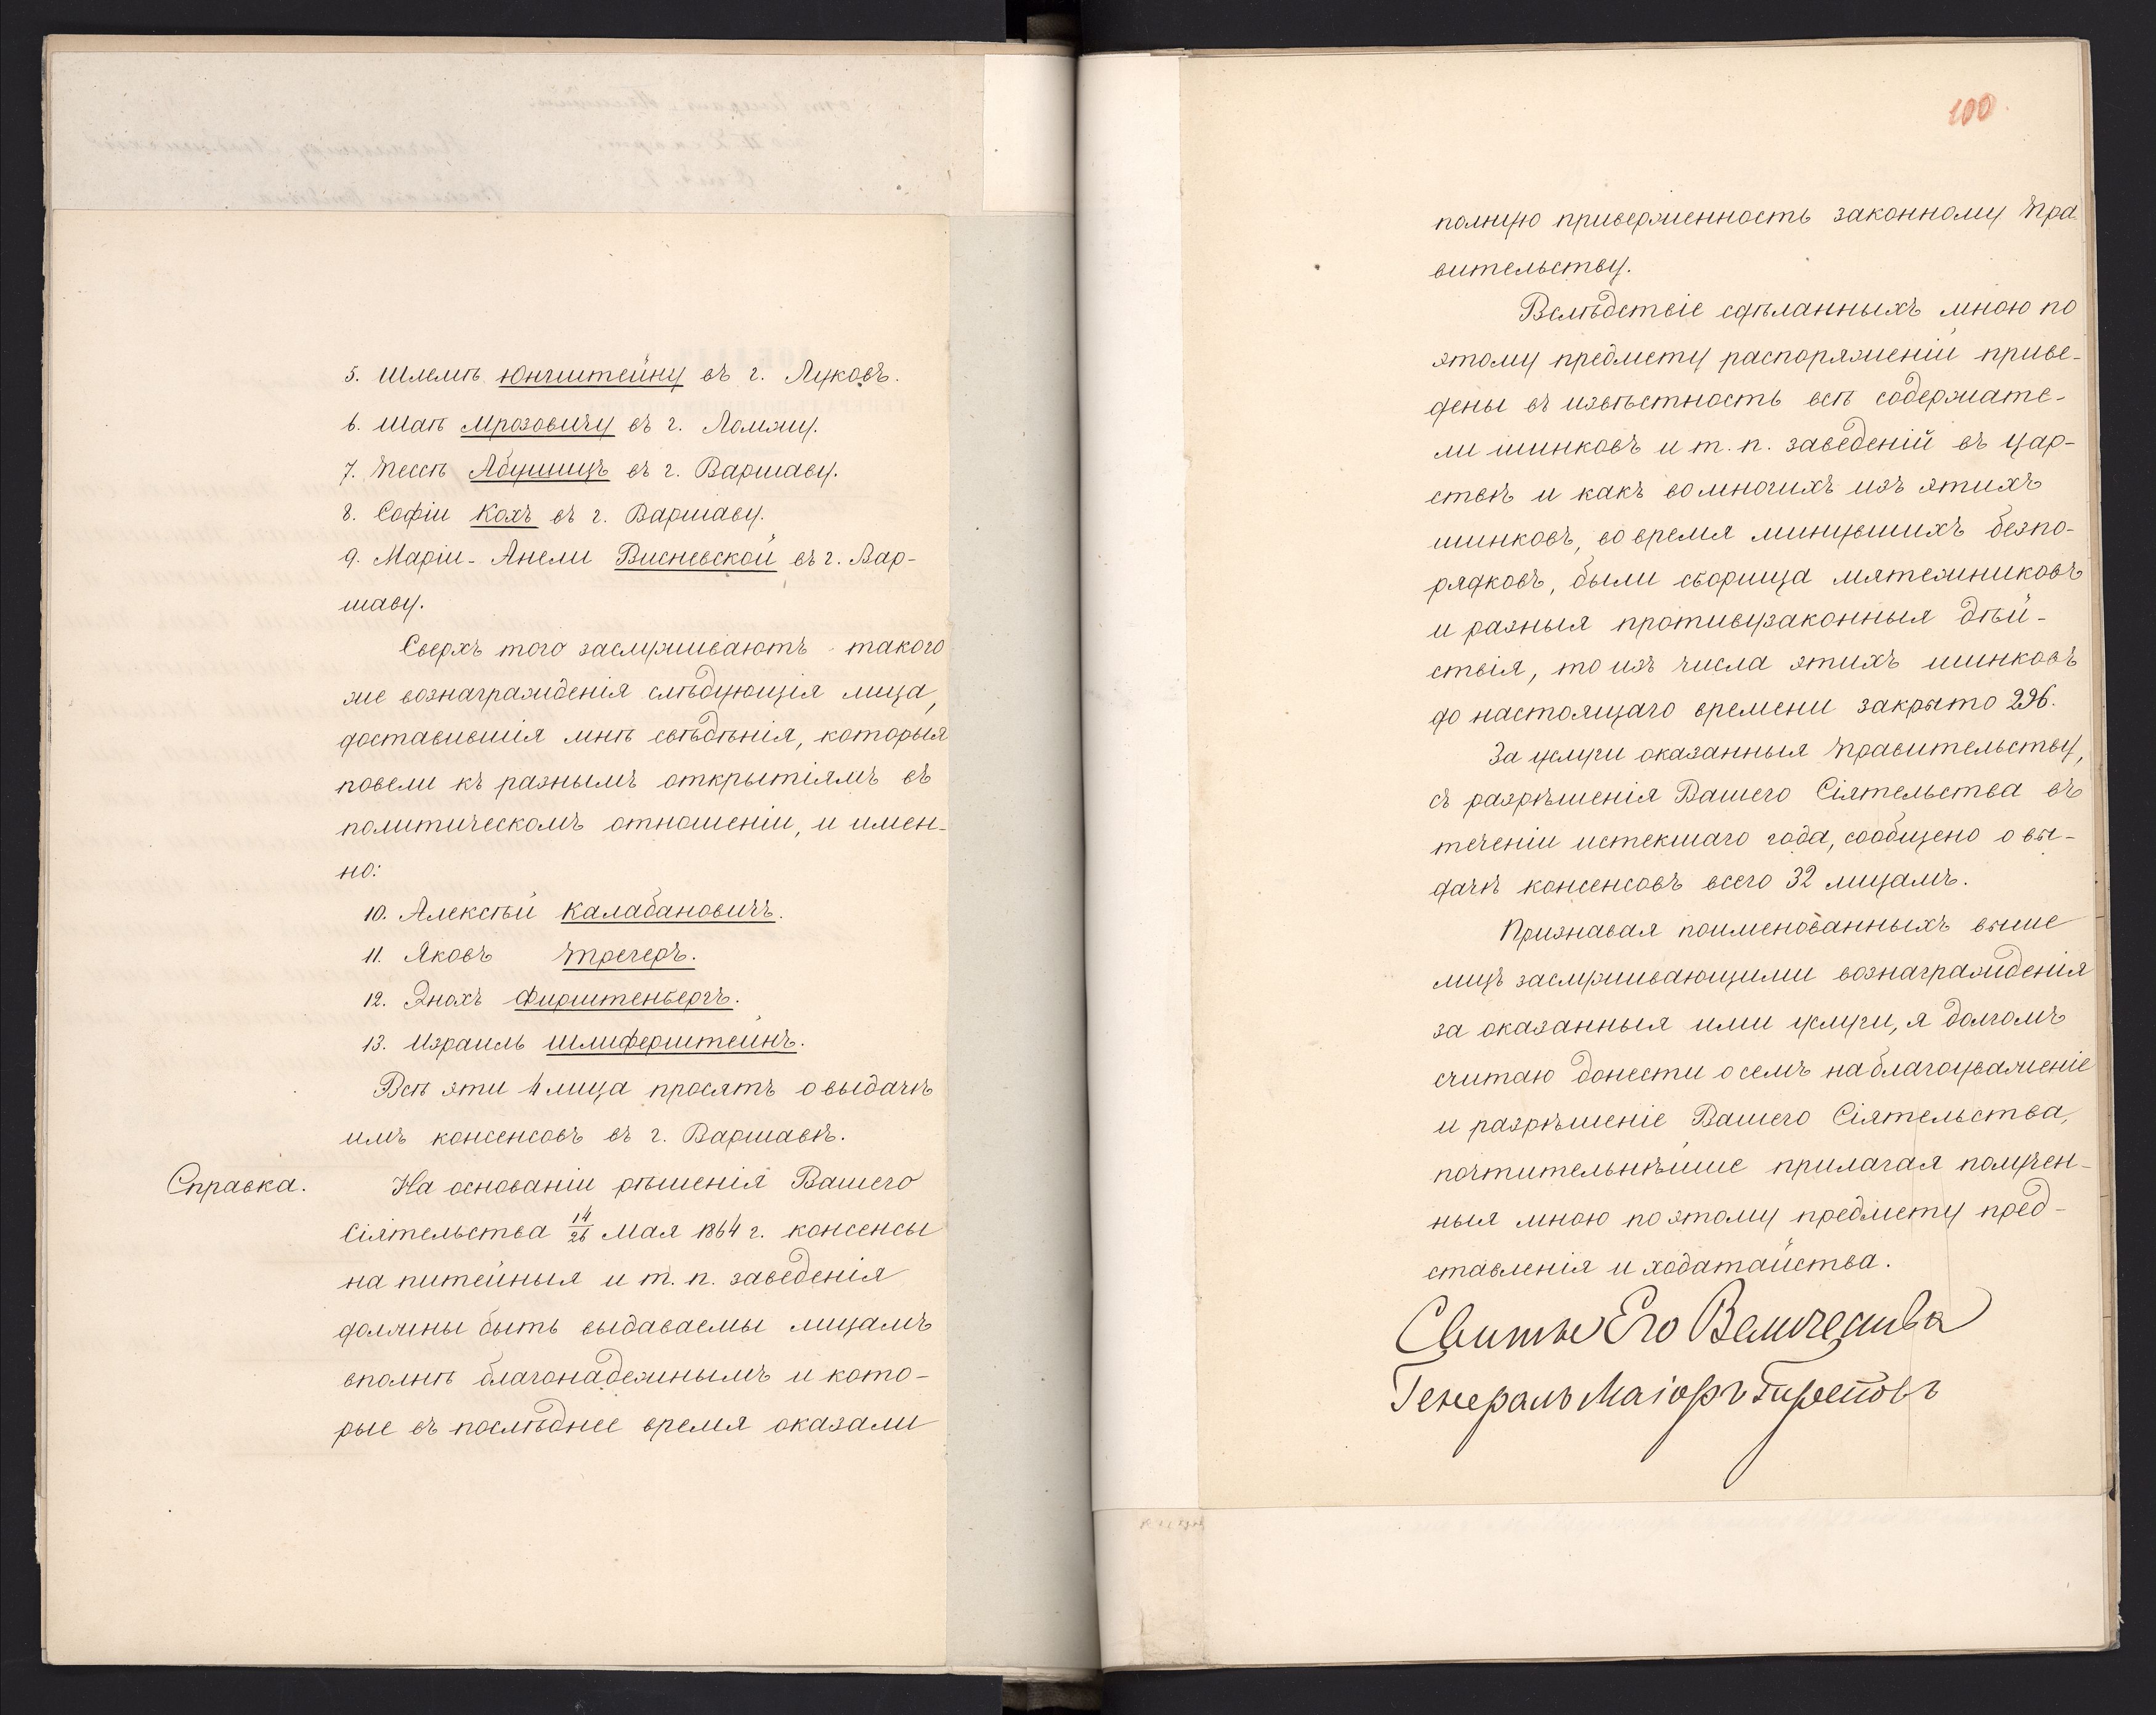 5. Шлемѣ Юнгштейну въ г. Луковъ.
6. Шаѣ Мрозовичу въ г. Ломжу.
7. Пессѣ Абушицъ въ г. Варшаву.
8. Софіи Кохъ въ г. Варшаву.
9. Маріи-Анели Висневской въ г. Вар-
шаву.
Сверхъ того заслуживаютъ такого
же вознагражденія слѣдующія лица,
доставившія мнѣ свѣдѣнія, которыя
повели къ разнымъ открытіямъ въ
политическомъ отношеніи, и имен-
но:
10. Алексѣй Калабановичъ.
11. Яковъ Тречеръ.
12. Энохъ Фирштенбергъ.
13. Израиль Шлиферштейнъ.
Всѣ эти 4 лица просятъ о выдачѣ
имъ консенсовъ въ г. Варшавѣ.
Справка. На основаніи рѣшенія Вашего
Сіятельства 14/26 Мая 1864 г. консенсы
на питейныя и т. п. заведенія
должны быть выдаваемы лицамъ
вполнѣ благонадежнымъ и кото-
рые въ послѣднее время оказали
100
полную приверженность законному Пра-
вительству.
Вслѣдствіе сдѣланныхъ мною по
этому предмету распоряженій приве-
дены въ извѣстность всѣ содержате-
ли шинковъ и т. п. заведеній въ Цар-
ствѣ и какъ во многихъ изъ этихъ
шинковъ, во время минувшихъ безпо-
рядковъ, были сборища мятежниковъ
и разныя противузаконныя дѣй-
ствія, то изъ числа этихъ шинковъ
до настоящаго времени закрыто 296.
За услуги оказанныя Правительству,
съ разрѣшенія Вашего Сіятельства въ
теченіи истекшаго года, сообщено о вы-
дачѣ консенсовъ всего 32 лицамъ.
Признавая поименованныхъ выше
лицъ заслуживающими вознагражденія
за оказанныя ими услуги, я долгомъ
считаю донести о семъ на благоуваженіе
и разрѣшеніе Вашего Сіятельства,
почтительнѣйше прилагая получен-
ныя мною по этому предмету пред-
ставленія и ходатайства.
Свиты Его Величества
Генералъ Маіоръ Треповъ